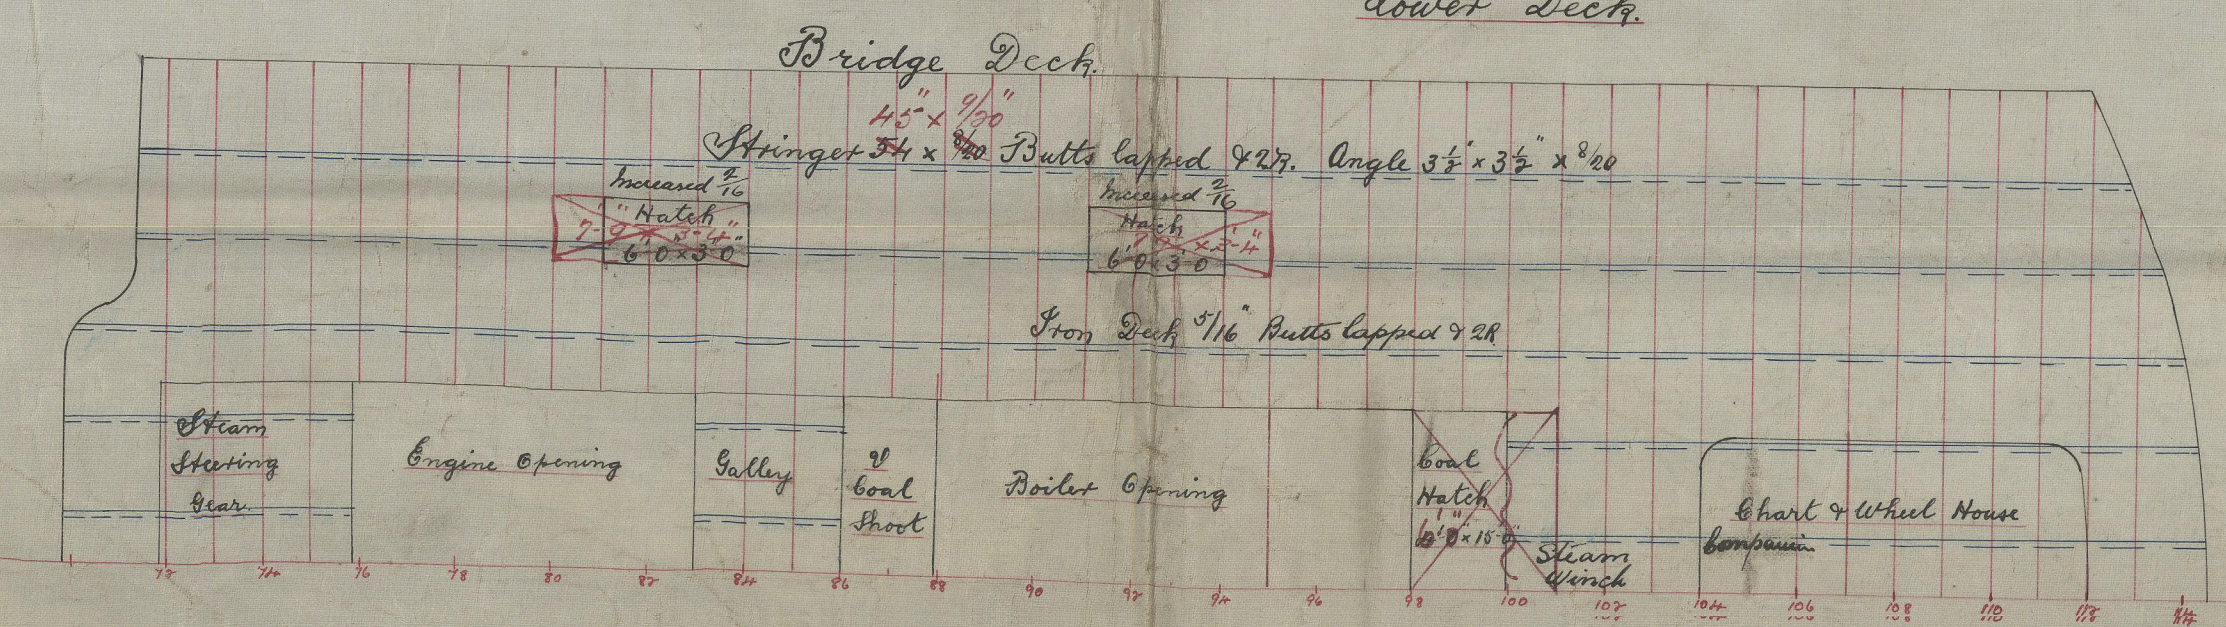 Lower Deck.
Bridge Deck.
45" x 9/20"
Stringer 54 x 8/20 Butts lapped & 2R. Angle 3½" x 3½" x 8/20
Increased 2/16
Hatch
7'-9" x 3'-4"
6'0" x 3'0"
Increased 2/16
Hatch
x 3'-4"
6'0 x 3'0
Iron Deck 5/16" Butts lapped & 2R
Steam
Steering
Gear.
Engine Opening
Galley
Coal
Shoot
Boiler Opening
Coal
Hatch
x 15'0"
Steam
Winch
Chart & Wheel House
Companion
72 74 76 78 80 82 84 86 88 90 92 94 96 98 100 102 104 106 108 110 112 114